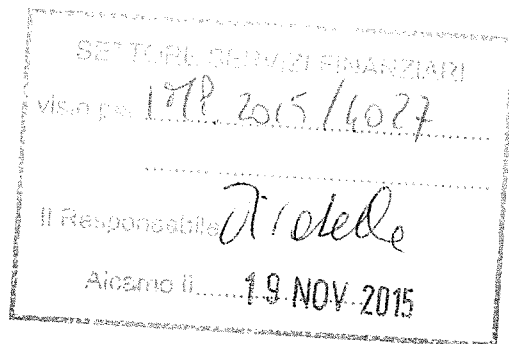 SETTORE SERVIZI FINANZIARI
visto per IMP. 2015/4027
Il Responsabile
Alcamo lì 19 NOV 2015